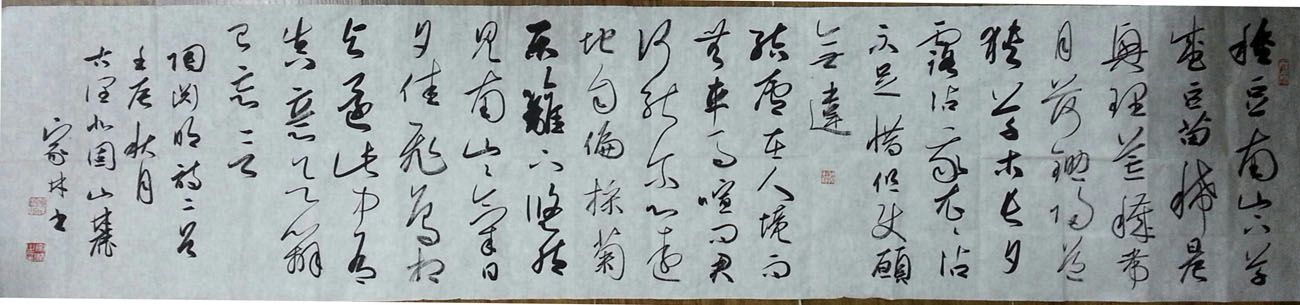 種豆南山下草
盛豆苗稀晨
興理荒穢帶
月荷鋤歸道
狹草木長夕
露沾我衣々沾
不足惜但使願
無違
結廬在人境而
無車馬喧問君
何能爾心遠
地自偏採菊
東籬下悠然
見南山々氣日
夕佳飛鳥相
與還此中有
真意欲辨
已忘言
陶淵明詩二首
壬辰秋月
古潤北固山麓
家林書